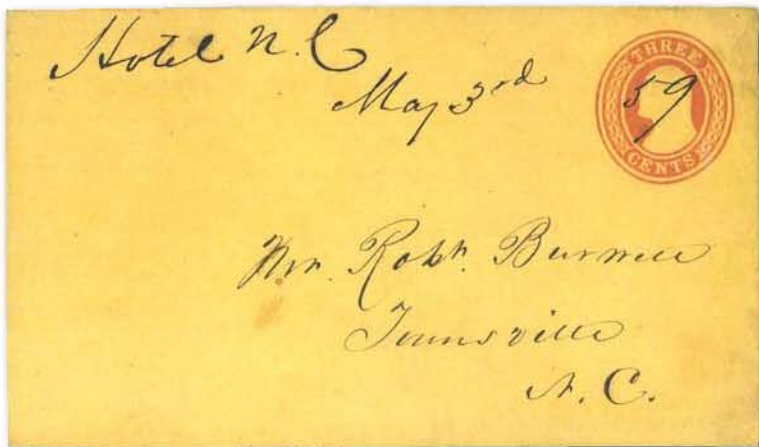 Hotel N.C
May 3rd
59
THREE
CENTS
Mr. Robt. Burwell
Townsville
N.C.